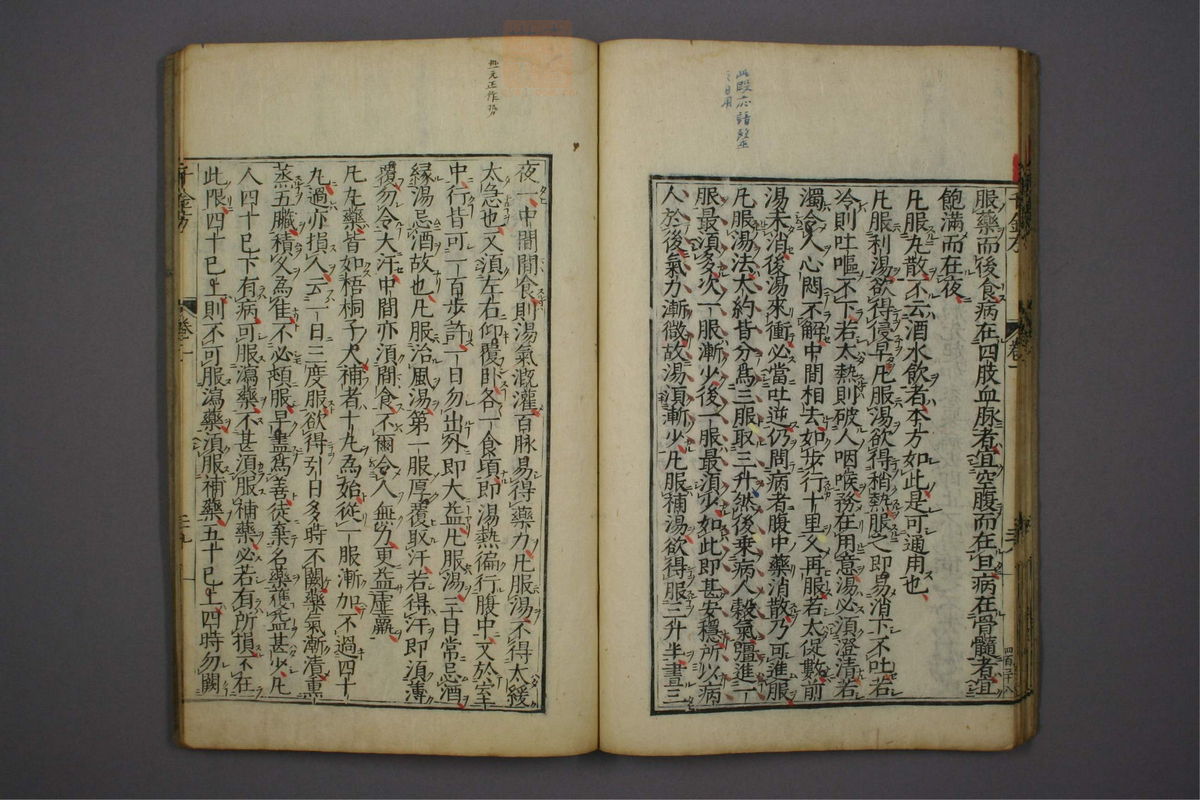 此段応諳誦
之日用
服藥而後食病在四肢血脉者宜空腹而在旦病在骨髓者宜
飽滿而在夜
凡服丸散不云酒水飲者本方如此是可通用也
凡服利湯欲得侵早凡服湯欲得稍熱服之即易消下不吐若
冷則吐嘔不下若太熱則破人咽喉務在用意湯必須澄清若
濁令人心悶不解中間相去如步行十里又再服若太促數前
湯未消後湯來衝必當吐逆仍問病者腹中藥消散乃可進服
凡服湯法大約皆分爲三服取三升然後乗病人穀氣强進一
服最須多次一服漸少後一服最須少如此即甚安穩所以病
人於後氣力漸微故湯須漸少凡服補湯欲得服三升半晝三
千金方
卷一
無元正作
夜一中間間食則湯氣溉灌百脉易得藥力凡服湯不得太緩
太急也又須左右仰覆卧各一食頃即湯熱徧行腹中又於室
中行皆可一百步許一日勿出外即大益凡服湯三日常忌酒
緣湯忌酒故也凡服治風湯第一服厚覆取汗若得汗即須薄
覆勿令大汗中間亦須間食不爾令人無力更益虛羸
凡丸藥皆如梧桐子大補者十丸為始從一服漸加不過四十
丸過亦損人云一日三度服欲得引日多時不闕藥氣漸漬熏
蒸五臟積久為佳不必頓服早盡為善徒棄名藥獲益甚少凡
人四十已下有病可服瀉藥不甚須服補藥必若有所損不在
此限四十已上則不可服瀉藥須服補藥五十已上四時勿闕
千金方
卷一